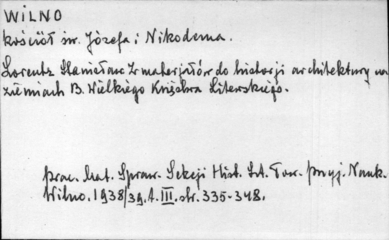 WILNO
kościół św. Józefa i Nikodema.
Lorentz Stanisław Z materjałów do historji architektury na
ziemiach B. Wielkiego Księstwa Litewskiego.
prac. Mat. Spraw. Sekcji Hist. Szt. Tow. przyj. Nauk.
Wilno. 1938/39. t. III. str. 335-348.